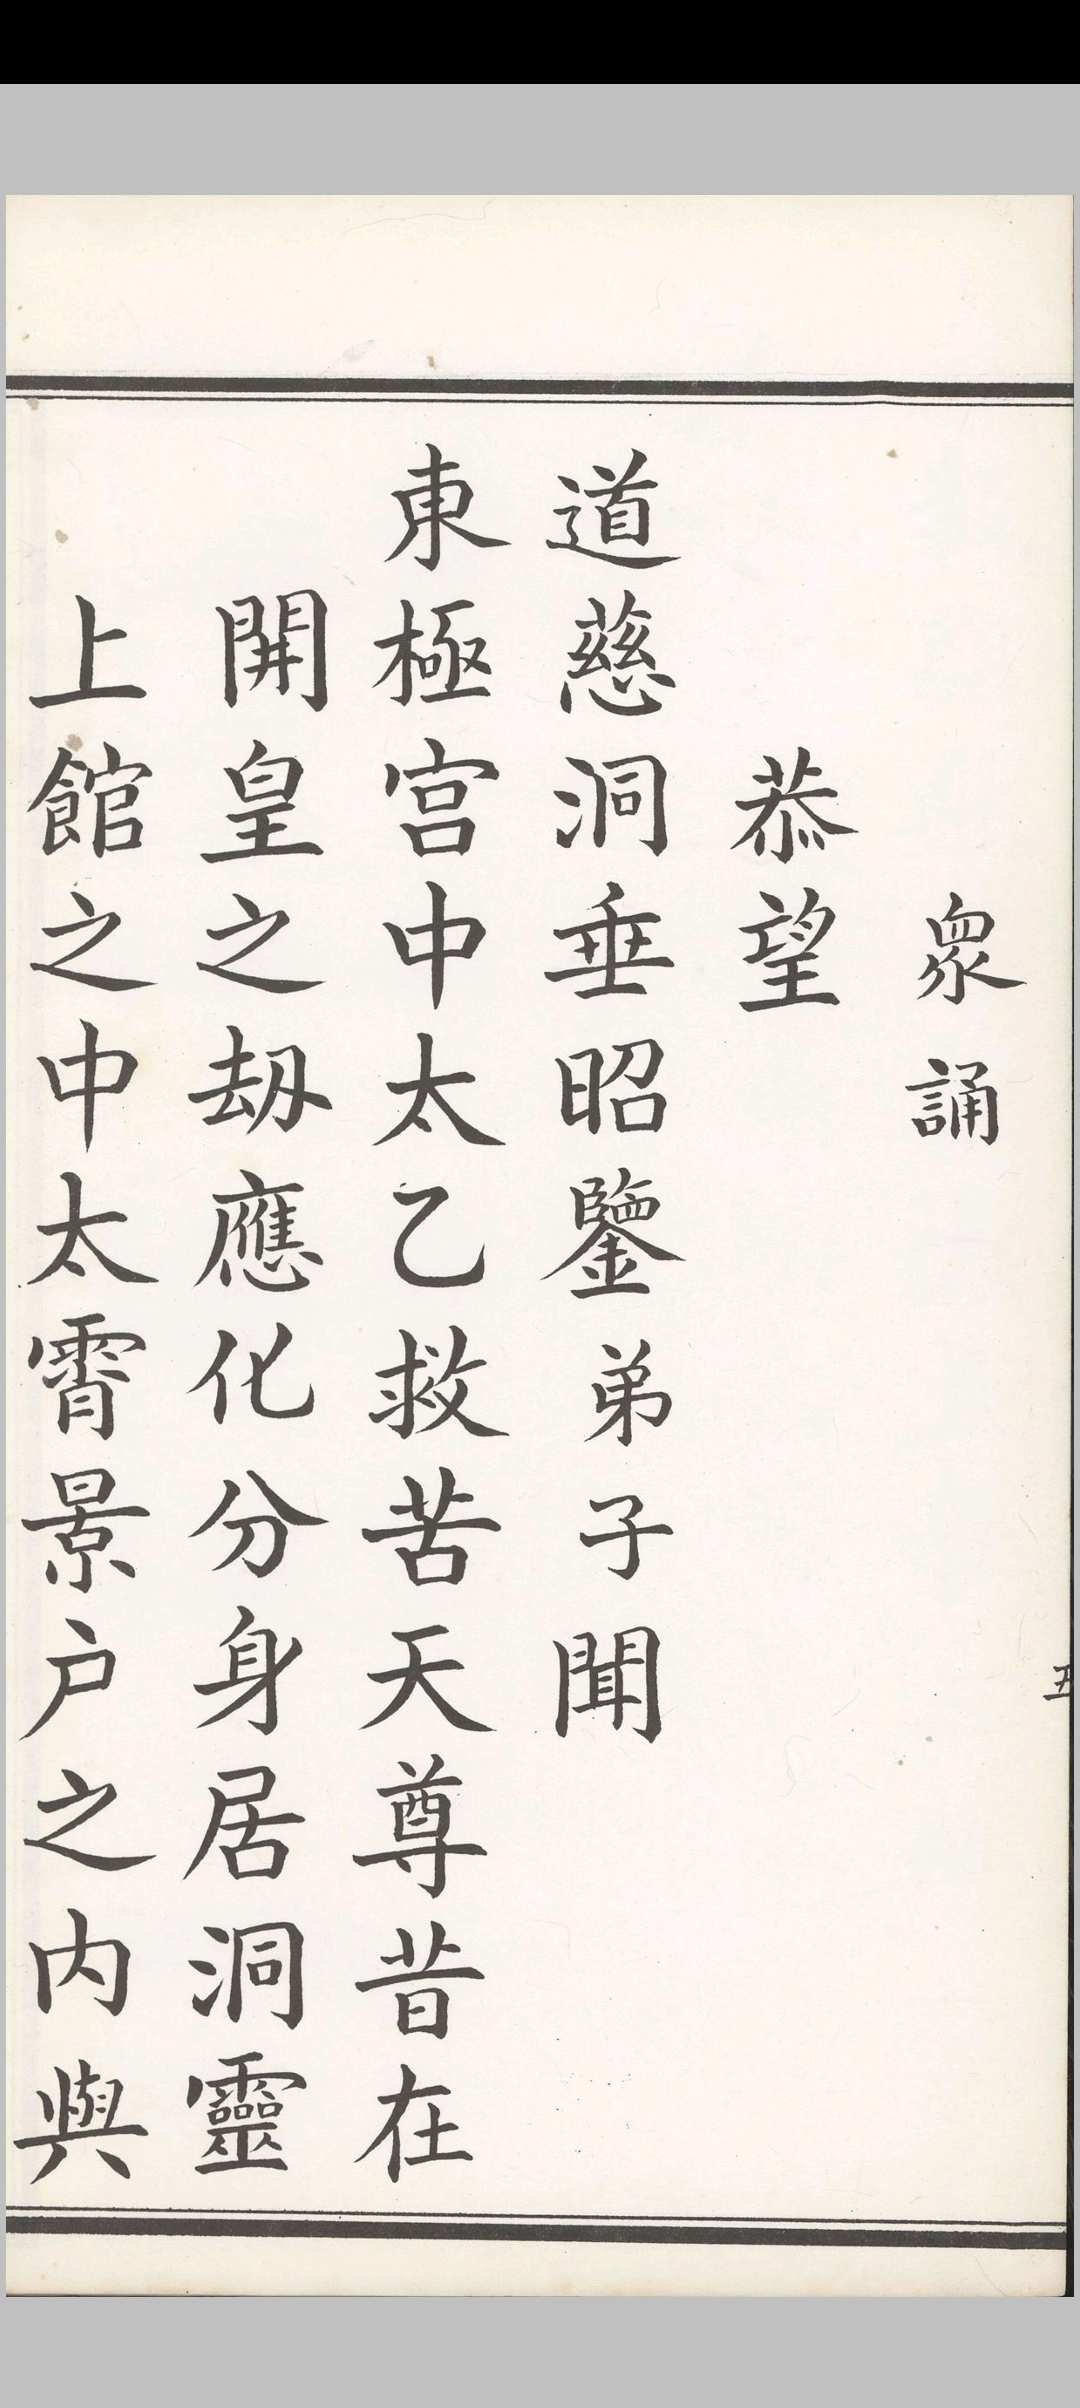 五
眾誦
恭望
道慈洞垂昭鑒弟子聞
東極宮中太乙救苦天尊昔在
開皇之劫應化分身居洞靈
上館之中太霄景戶之內與